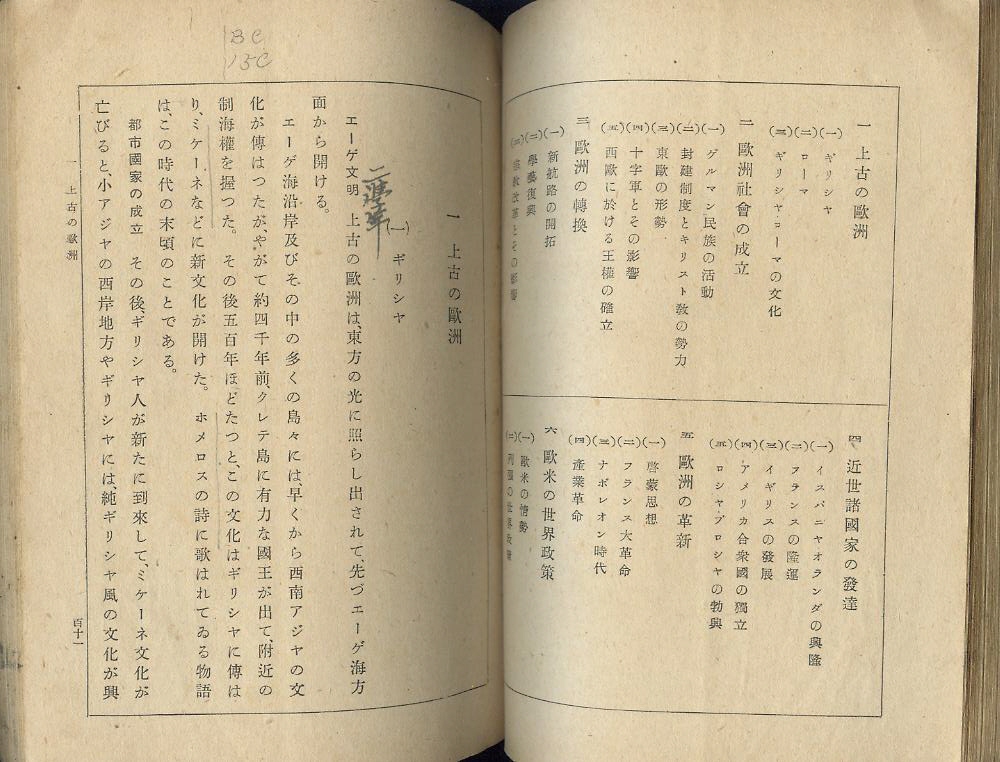 一 上古の歐洲
(一) ギリシヤ
(二) ローマ
(三) ギリシヤ・ローマの文化
二 歐洲社會の成立
(一) ゲルマン民族の活動
(二) 封建制度とキリスト敎の勢力
(三) 東歐の形勢
(四) 十字軍とその影響
(五) 西歐に於ける王權の確立
三 歐洲の轉換
(一) 新航路の開拓
(二) 學藝復興
(三) 宗敎改革とその影響
四 近世諸國家の發達
(一) イスパニヤオランダの興隆
(二) フランスの隆運
(三) イギリスの發展
(四) アメリカ合衆國の獨立
(五) ロシヤ・プロシヤの勃興
五 歐洲の革新
(一) 啓蒙思想
(二) フランス大革命
(三) ナポレオン時代
(四) 產業革命
六 歐米の世界政策
(一) 歐米の情勢
(二) 列强の世界政策
BC
15C
一 上古の歐洲
(一) ギリシヤ
エーゲ文明 上古の歐洲は、東方の光に照らし出されて先づエーゲ海方
面から開ける。
エーゲ海沿岸及びその中の多くの島々には、早くから西南アジヤの文
化が傳はつたが、やがて約四千年前、クレテ島に有力な國王が出て、附近の
制海權を握つた。その後五百年ほどたつと、この文化はギリシヤに傳は
り、ミケーネなどに新文化が開けた。ホメロスの詩に歌はれてゐる物語
は、この時代の末頃のことである。
都市國家の成立 その後、ギリシヤ人が新たに到來して、ミケーネ文化が
亡びると、小アジヤの西岸地方やギリシヤには、純ギリシヤ風の文化が興
一 上古の歐洲
百十一